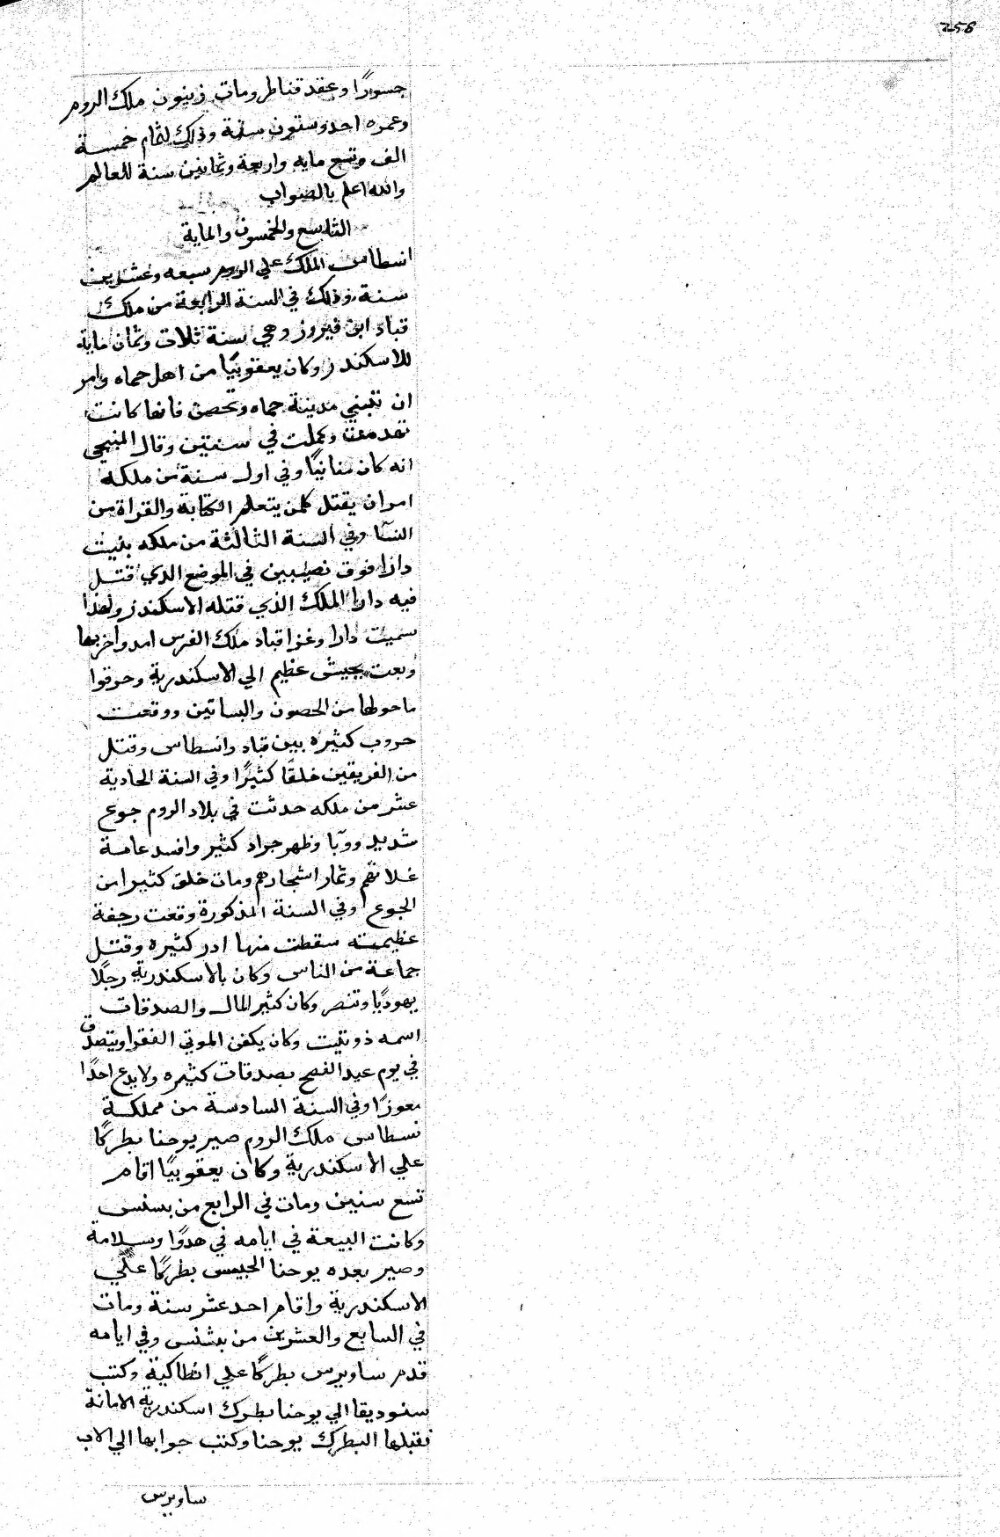 258
جسورًا وعقد قناطر ومات زينون ملك الروم
وعمره احد وستون سنة وذلك لتمام خمسة
الف وتسع مايه واربعة وثمانين سنة للعالم
والله اعلم بالصواب
التاسع والخمسون والماية
انسطاس الملك علي الروم سبعه وعشرين
سنة وذلك في السنة الرابعة من ملك
قباد ابن فيروز وهي سنة ثلاث وثمان ماية
للاسكندر وكان يعقوبيًا من اهل حماه وامر
ان تبني مدينة حماه وتحصن فانها كانت
تهدمت وكملت في سنتين وقال المنبجي
انه كان منانيًا وفي اول سنة من ملكه
امر ان يقتل كلمن يتعلم الكتابة والقراة من
النسآ وفي السنة الثالثة من ملكه بنيت
دارا فوق نصيبين في الموضع الدي قتل
فيه دارا الملك الذي قتله الاسكندر ولهذا
سميت دارا وغزا قباد ملك الفرس امد واخربها
وبعت بجيش عظيم الي الاسكندرية وحرقوا
ماحولها من الحصون والبساتين ووقعت
حروب كثيره بين قباد وانسطاس وقتل
من الفريقين خلقًا كثيرًا وفي السنة الحادية
عشر من ملكه حدثت في بلاد الروم جوع
شديد ووبآ وظهر جراد كثير وافسد عامة
غلاتهم وثمار اشجارهم ومات خلق كثيرا من
الجوع وفي السنة المذكورة وقعت رجفة
عظيمته سقطت منها ادر كثيره وقتل
جماعة من الناس وكان بالاسكندرية رجلًا
يهوديًا وتنصر وكان كثير المال والصدقات
اسمه وكان يكفن الموتي الفقرا ويتصدق
في يوم عيد الفصح بصدقات كثيره ولا يدع احدًا
معوزًا وفي السنة السادسة من مملكة
نسطاس ملك الروم صير يوحنا بطركًا
علي الاسكندرية وكان يعقوبيًا اقام
تسع سنين ومات في الرابع من بسنس
وكانت البيعة في ايامه في هدوًا وسلامة
وصير بعده يوحنا الحبيس بطركًا علي
الاسكندرية واقام احد عشر سنة ومات
في السابع والعشرين من بشنس وفي ايامه
قدم ساويرس بطركًا علي انطاكية وكتب
سنوديقا الي يوحنا بطرك اسكندرية الامانة
فقبلها البطرك يوحنا وكتب جوابها الي الاب
ساويرس